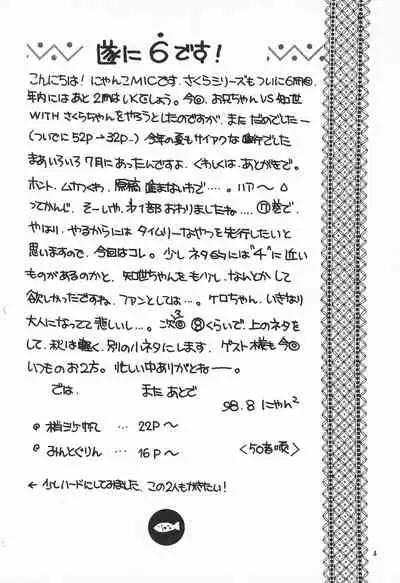 遂に6です!
こんにちは!にゃんこMICです。さくらシリーズもついに6冊目。
年内にはあと2冊はいくでしょう。今回、お兄ちゃんVS知世
WITHさくらちゃんをやろうとしたのですが、まだだめでした—
(ついでに52P→32P…)今年の夏もサイアクな進行でした
まあいろいろ7月にあったんですよ、くわしくは、あとがきで。
ホント、ムカつくわ、原稿進まないわで…。ハア〜
ってかんじ、そーいや、オ1部おわりましたね…。⑰巻で。
やはり、やるからにはタイムリーなやつを先行したいと
思いますので、今回はコレ。少しネタ的には"4"に近い
ものがあるのかと、知世ちゃんをもう少し、なんとかして
欲しかったですね、ファンとしては…。ケロちゃん、いきなり
大人になってて悲しいし…。次回⑧くらいで、上のネタを
して、秋は軽く、別の小ネタにします。ゲスト様も今回
いつものお2方。忙しい中ありがとねー。
では、 またあとで
98.8 にゃん²
◎ … 22P〜
◎ みんとぐりん … 16P〜
〈50音順〉
← 少しハードにしてみました、この2人もかきたい!
4